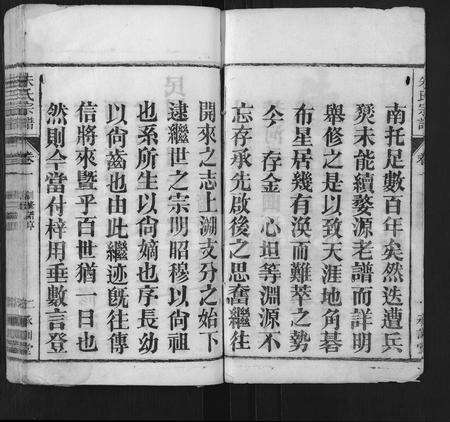 南托足數百年矣然迭遭兵
燹未能續婺源老譜而詳明
舉修之是以致天涯地角碁
布星居幾有渙而難萃之勢
今 存金 心坦等淵源不
忘存承先啟後之思奮繼往
開來之志上溯支分之始下
逮繼世之宗明昭穆以尙祖
也系所生以尙嫡也序長幼
以尙齒也由此繼迹旣往傳
信將來曁乎百世猶一日也
然則今當付梓用垂數言登
朱氏宗譜
卷